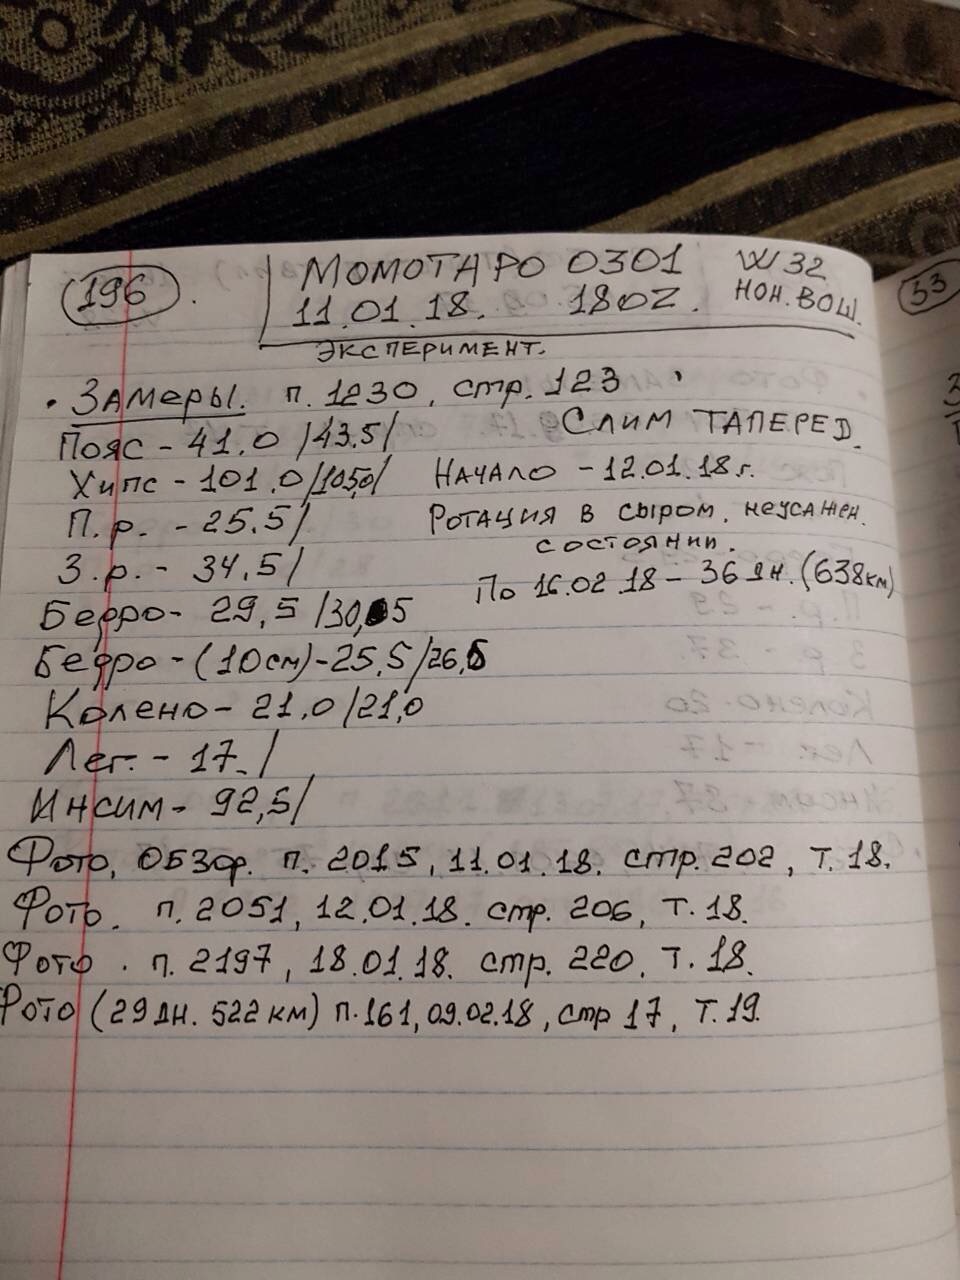 196. МОМОТАРО 0301 W32
11.01.18. 18OZ. НОН.ВОШ.
ЭКСПЕРИМЕНТ.
• ЗАМеРЫ. п. 1230, стр. 123
Пояс - 41.0 /43.5/ СЛИМ ТАПЕРЕД.
Хипс - 101.0/105,0/ НАЧАЛО - 12.01.18г.
П.р. - 25.5/ РОТАЦИЯ В СЫРОМ, НЕУСАЖЕН.
СОСТОЯНИИ.
З.р. - 34,5/ По 16.02.18 - 36 дн. (638км)
Бедро - 29,5/30,5
Бедро - (10см) - 25,5/26,5
Колено - 21.0/21,0
Лег. - 17./
Инсим - 92,5/
Фото, ОБЗОР. п. 2015, 11.01.18. стр. 202, Т.18.
Фото. п. 2051, 12.01.18. стр. 206, Т.18.
Фото. п. 2197, 18.01.18. стр. 220, Т.18.
Фото (29 дн. 522 км) п.161, 09.02.18, стр 17, Т.19.
53